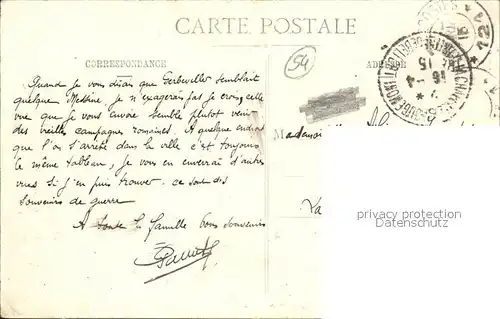 CARTE POSTALE
CORRESPONDANCE
ADRESSE
54
Quand je vous disais que Gerbeviller semblait
quelque Messine, je n'exagérais pas je crois, cette
vue que je vous envoie semble plutot venir
des vieilles campagnes romaines. A quelque endroit
que l'on s'arrête dans la ville c'est toujours
le même tableau, je vous en enverrai d'autres
vues si j'en puis trouver. ce sont des
souvenirs de guerre
A toute la famille bons souvenirs
Mademoi
privacy protection
Datenschutz